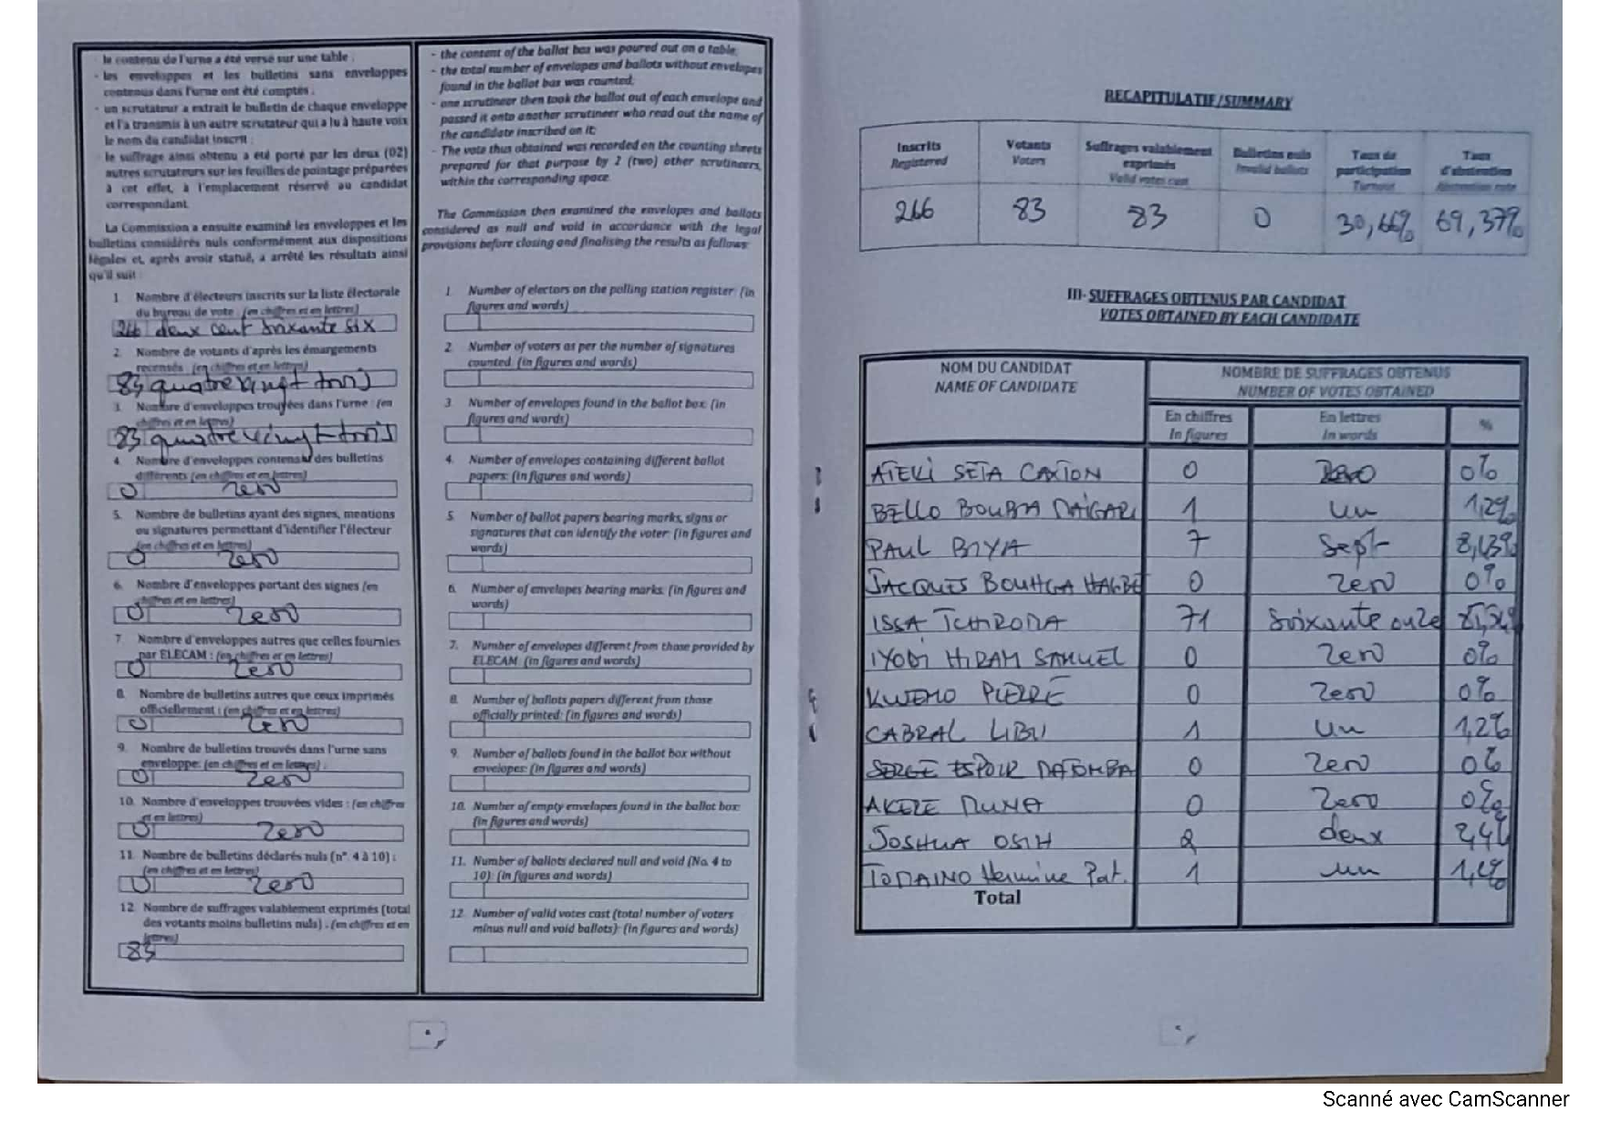 le contenu de l'urne a été versé sur une table ;
- les enveloppes et les bulletins sans enveloppes
contenus dans l'urne ont été comptés ;
- un scrutateur a extrait le bulletin de chaque enveloppe
et l'a transmis à un autre scrutateur qui a lu à haute voix
le nom du candidat inscrit ;
- le suffrage ainsi obtenu a été porté par les deux (02)
autres scrutateurs sur les feuilles de pointage préparées
à cet effet, à l'emplacement réservé au candidat
correspondant.
La Commission a ensuite examiné les enveloppes et les
bulletins considérés nuls conformément aux dispositions
légales et, après avoir statué, a arrêté les résultats ainsi
qu'il suit :
1. Nombre d'électeurs inscrits sur la liste électorale
du bureau de vote : (en chiffres et en lettres)
266 deux cent soixante six
2. Nombre de votants d'après les émargements
recensés : (en chiffres et en lettres)
83 quatre vingt trois
3. Nombre d'enveloppes trouvées dans l'urne : (en
chiffres et en lettres)
83 quatre vingt trois
4. Nombre d'enveloppes contenant des bulletins
différents (en chiffres et en lettres)
0 zero
5. Nombre de bulletins ayant des signes, mentions
ou signatures permettant d'identifier l'électeur
(en chiffres et en lettres)
0 zero
6. Nombre d'enveloppes portant des signes (en
chiffres et en lettres)
0 zero
7. Nombre d'enveloppes autres que celles fournies
par ELECAM : (en chiffres et en lettres)
0 zero
8. Nombre de bulletins autres que ceux imprimés
officiellement : (en chiffres et en lettres)
0 zero
9. Nombre de bulletins trouvés dans l'urne sans
enveloppe: (en chiffres et en lettres) :
0 zero
10. Nombre d'enveloppes trouvées vides : (en chiffres
et en lettres)
0 zero
11. Nombre de bulletins déclarés nuls (n° 4 à 10) :
(en chiffres et en lettres)
0 zero
12. Nombre de suffrages valablement exprimés (total
des votants moins bulletins nuls) : (en chiffres et en
lettres)
83
- the content of the ballot box was poured out on a table;
- the total number of envelopes and ballots without envelopes
found in the ballot box was counted;
- one scrutineer then took the ballot out of each envelope and
passed it onto another scrutineer who read out the name of
the candidate inscribed on it;
- The vote thus obtained was recorded on the counting sheets
prepared for that purpose by 2 (two) other scrutineers,
within the corresponding space.
The Commission then examined the envelopes and ballots
considered as null and void in accordance with the legal
provisions before closing and finalising the results as follows:
1. Number of electors on the polling station register: (in
figures and words)
2. Number of voters as per the number of signatures
counted: (in figures and words)
3. Number of envelopes found in the ballot box: (in
figures and words)
4. Number of envelopes containing different ballot
papers: (in figures and words)
5. Number of ballot papers bearing marks, signs or
signatures that can identify the voter: (in figures and
words)
6. Number of envelopes bearing marks: (in figures and
words)
7. Number of envelopes different from those provided by
ELECAM: (in figures and words)
8. Number of ballots papers different from those
officially printed: (in figures and words)
9. Number of ballots found in the ballot box without
envelopes: (in figures and words)
10. Number of empty envelopes found in the ballot box:
(in figures and words)
11. Number of ballots declared null and void (No. 4 to
10): (in figures and words)
12. Number of valid votes cast (total number of voters
minus null and void ballots): (in figures and words)
RECAPITULATIF/SUMMARY
Inscrits Registered
Votants Voters
Suffrages valablement exprimés Valid votes cast
Bulletins nuls Invalid ballots
Taux de participation Turnout
Taux d'abstention Abstention rate
266 83 83 0 30,66% 69,37%
III- SUFFRAGES OBTENUS PAR CANDIDAT
VOTES OBTAINED BY EACH CANDIDATE
NOM DU CANDIDAT NOMBRE DE SUFFRAGES OBTENUS
NAME OF CANDIDATE NUMBER OF VOTES OBTAINED
En chiffres En lettres %
In figures In words
ATEKI SETA CAXTON 0 zero 0%
BELLO BOUBA MAIGARI 1 un 1,2%
PAUL BIYA 7 Sept 8,43%
JACQUES BOUHGA HAGBE 0 zero 0%
ISSA TCHIROMA 71 Soixante onze
IYODI HIRAM SAMUEL 0 zero 0%
KWEMO PIERRE 0 zero 0%
CABRAL LIBII 1 un 1,2%
SERGE ESPOIR MATOMBA 0 zero 0%
AKERE MUNA 0 zero 0%
JOSHUA OSIH 2 deux 2,4%
TOMAINO Hermine Pat. 1 un 1,2%
Total
Scanné avec CamScanner